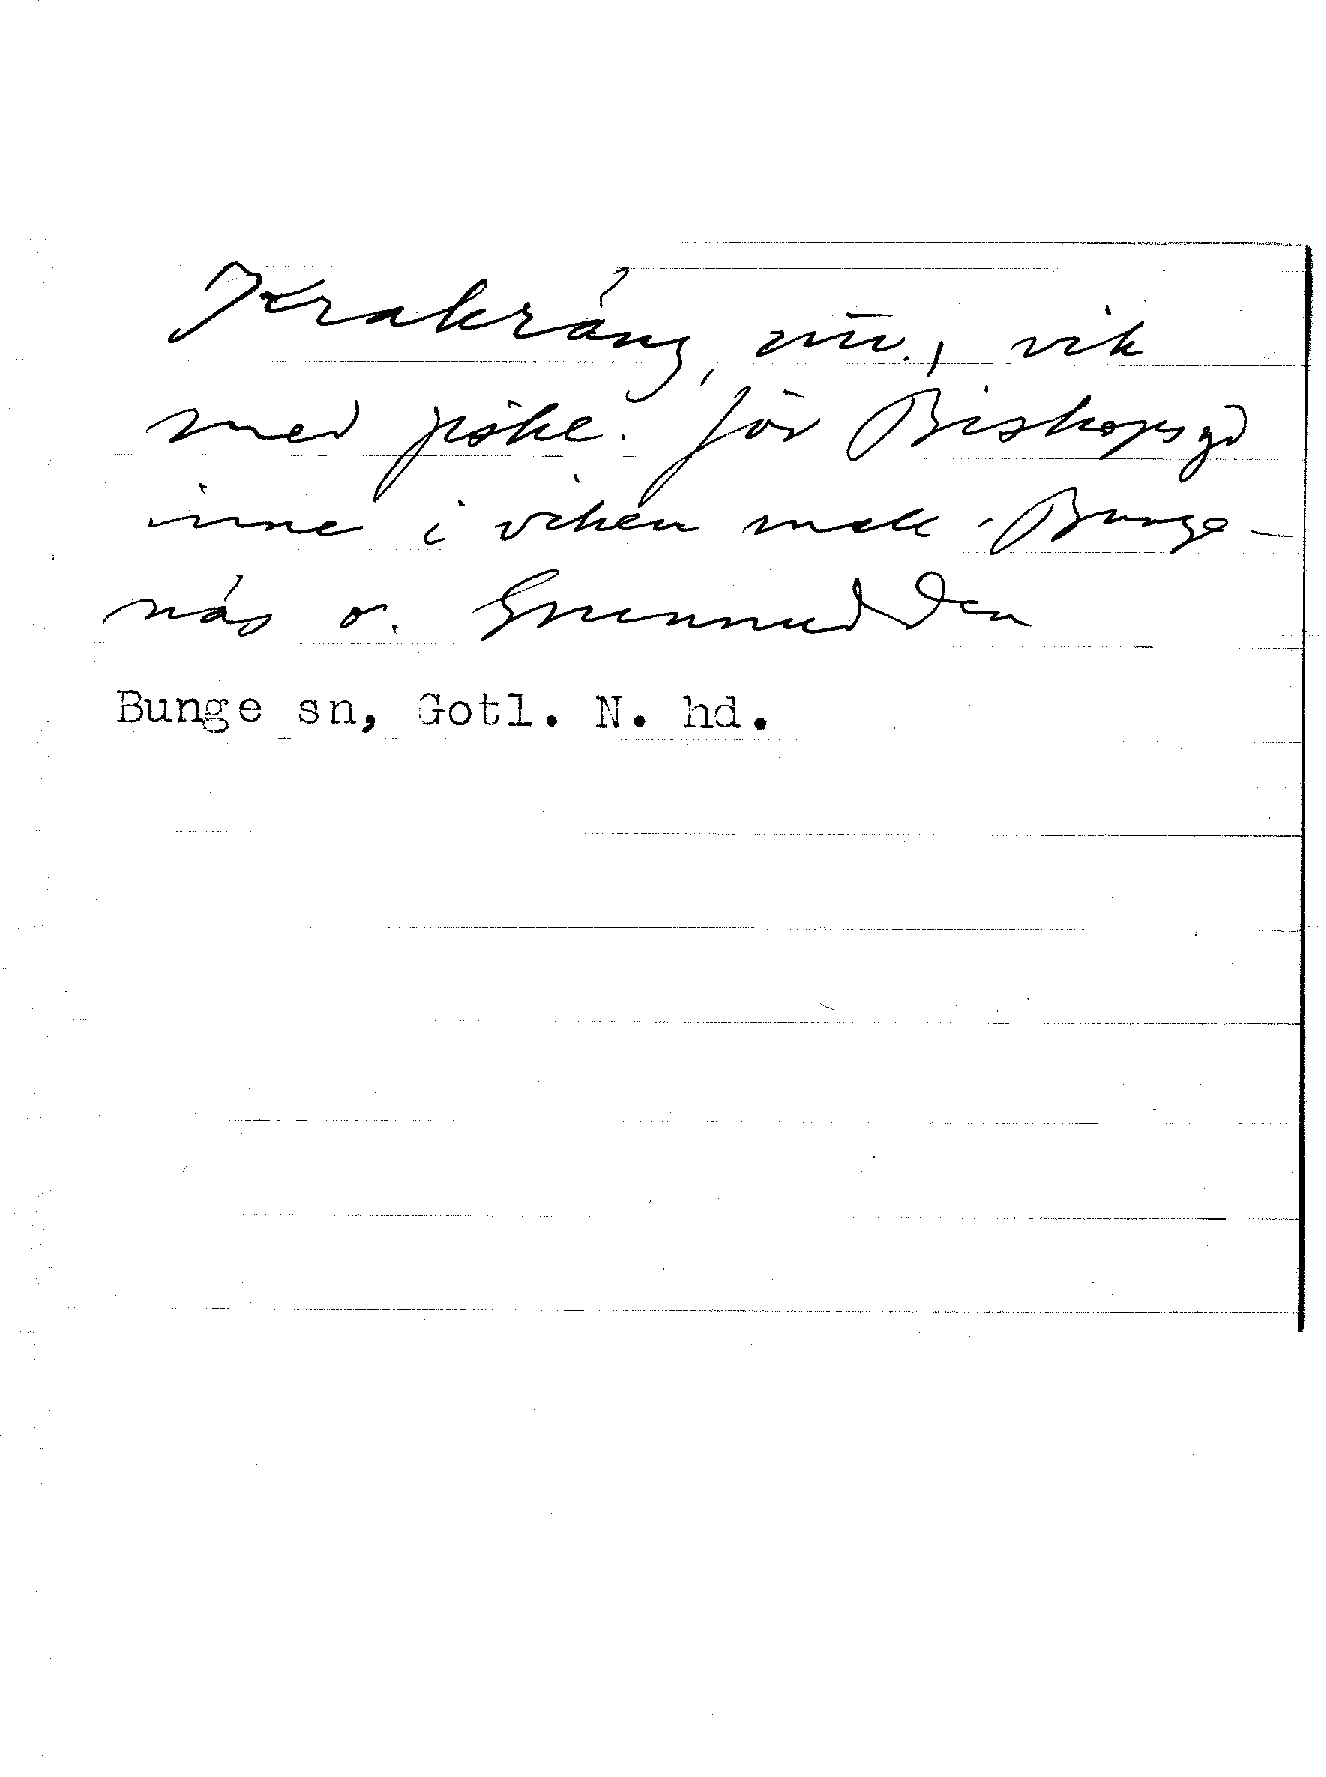 Krakräng, nu., vik
med fiske. för Bishopsgd
inne i viken mell. Bunge-
näs o. Grunnudden
Bunge sn, Gotl. N. hd.